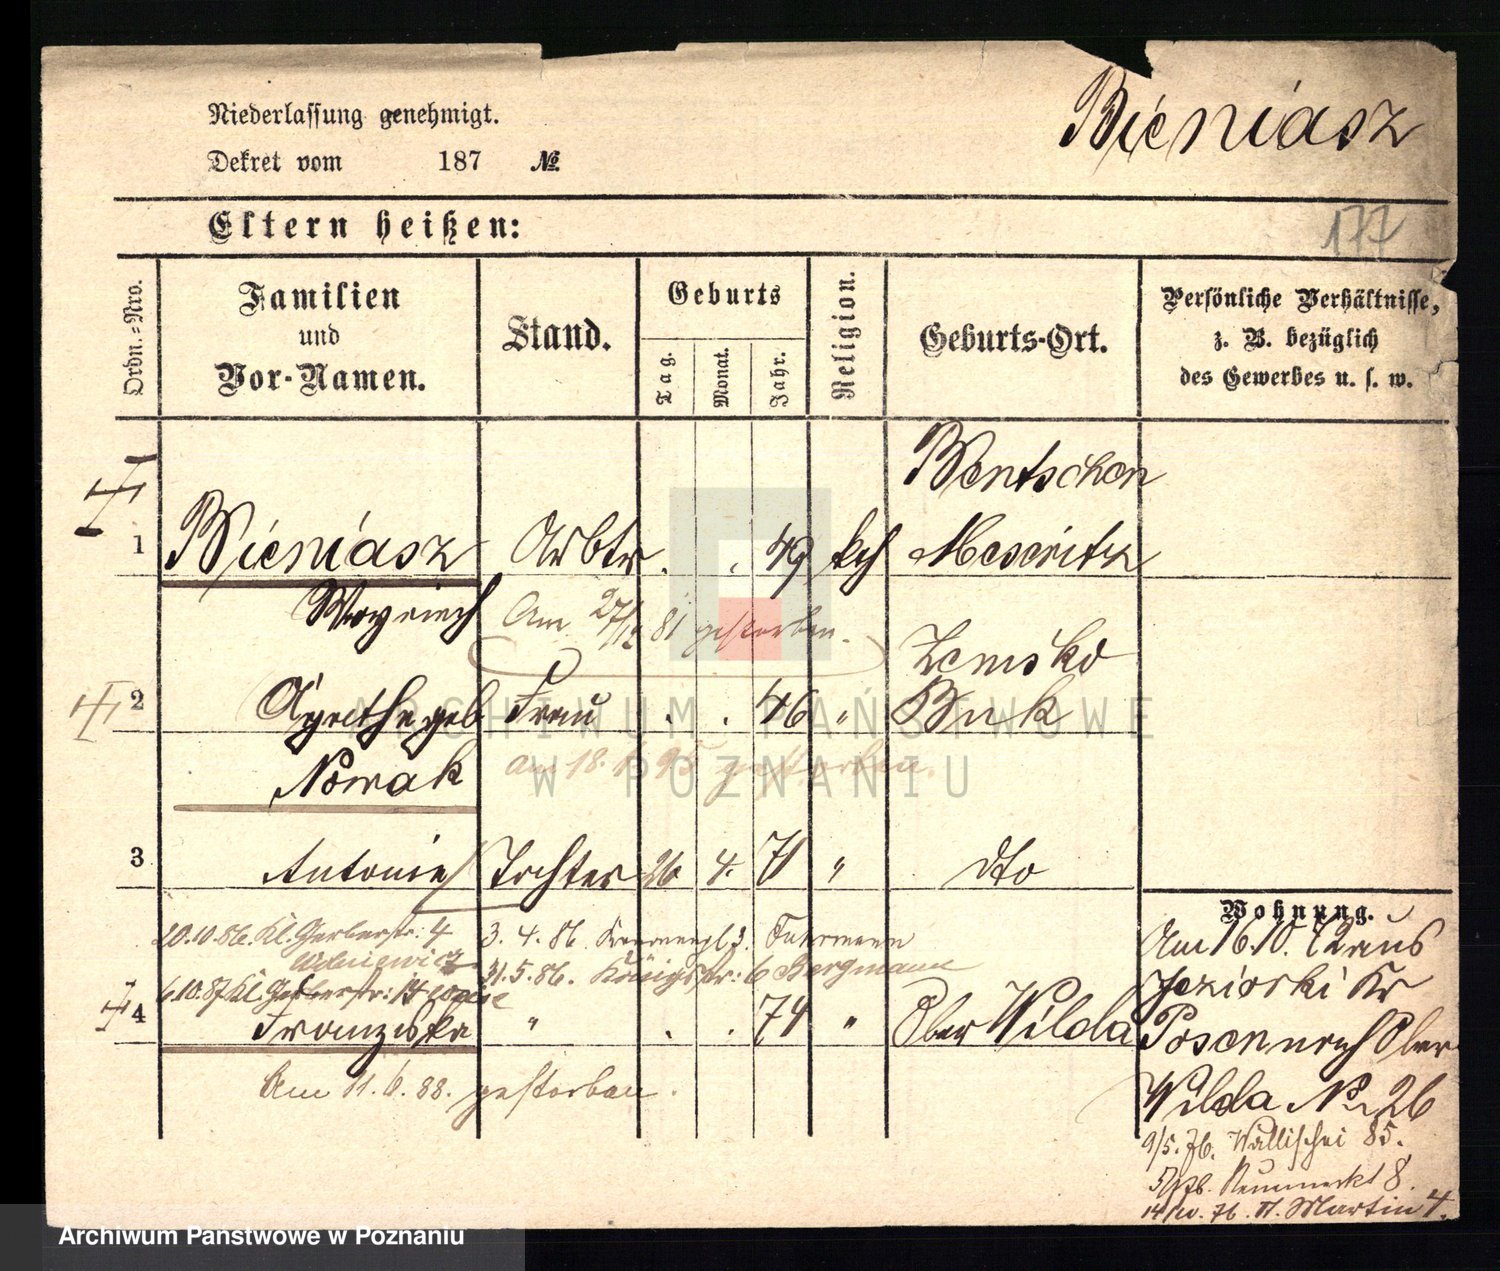 Bieniasz
Niederlassung genehmigt.
Dekret vom 187 №
177
Eltern heißen:
Ordn.-Nro.
Familien
und
Vor-Namen.
Stand.
Geburts
Tag.
Monat.
Jahr.
Religion.
Geburts-Ort.
Persönliche Verhältnisse,
z. B. bezüglich
des Gewerbes u. s. w.
Bentschen
1 Bieniasz Arbtr . . 49 kth Meseritz
Woyciech Am 27/12 81 gestorben.
Zemsko
2 Agnethe geb Frau . . 46 " Buk
Nowak am 18. 95 gestorben.
3 Antonie Tochter 26 4. 71 " dto
20.10.86. Kl. Gerberstr: 4 3. 4. 86. 3. Fuhrmann
31.5.86. Königstr: 6 Bergmann
6.10.87 Kl. Gerberstr: 14
4 Franziska " . . 74 " Ober Wilda
Am 11. 6. 88. gestorben.
Wohnung.
Am 16.10. 72 aus
Jeziorski Kr
Posen nach Ober
Wilda No 26
9/5. 76. Wallischei 85.
76. Neumarkt 8.
14/10. 76. St. Martin 4.
ARCHIWUM PAŃSTWOWE
W POZNANIU
Archiwum Państwowe w Poznaniu